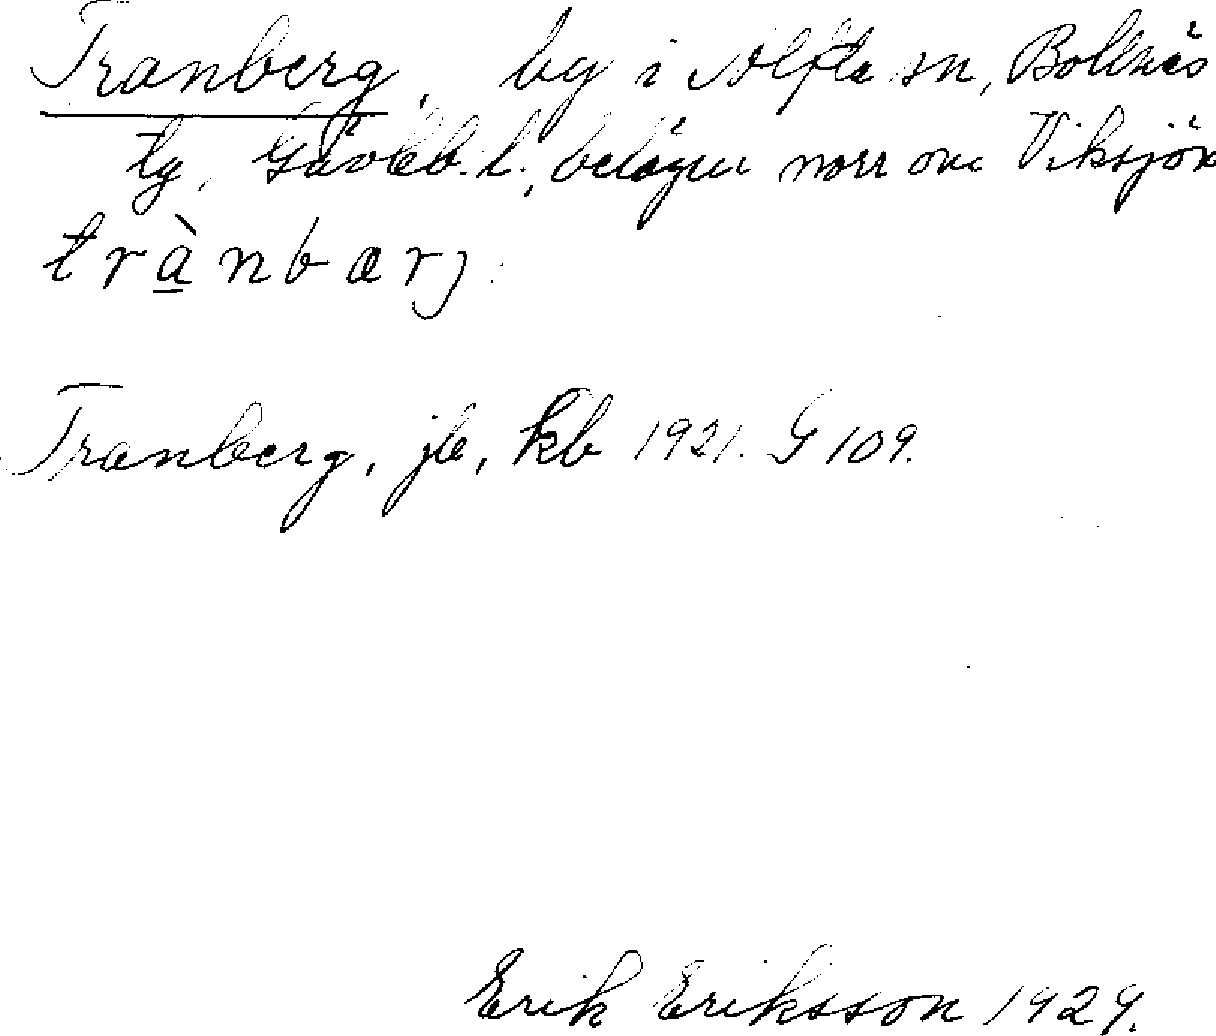 Tranberg, by i Alfta sn, Bollnäs
tg, Gävleb. l., belägen norr om Viksjön
trànbærj.
Tranberg, jb, kb 1921. G 109.
Erik Eriksson 1929.